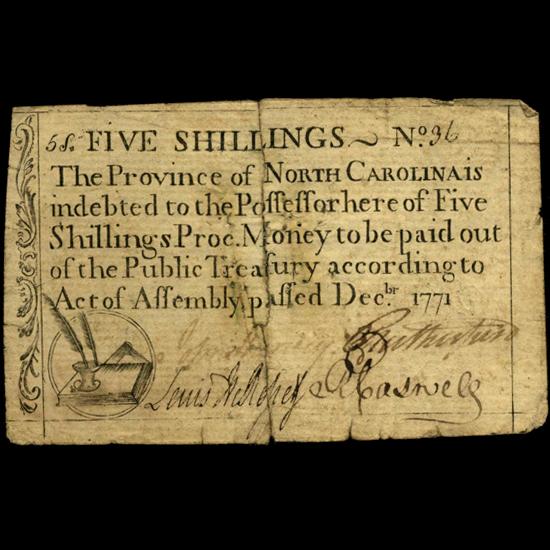 5s. FIVE SHILLINGS ~ No. 96
The Province of NORTH CAROLINA is
indebted to the Poſſeſſor hereof Five
Shillings Proc. Money to be paid out
of the Public Treaſury according to
Act of Aſſembly, paſſed Decbr. 1771
Rutherfurd
Lewis De Roſſet RCaswell